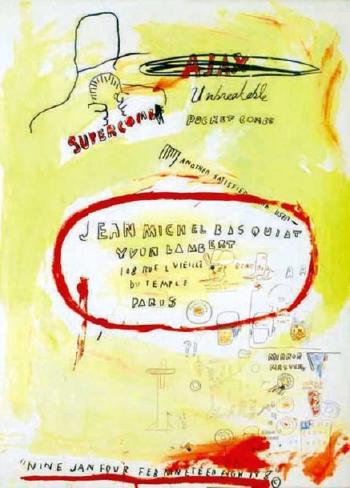 AJAX
Unbreakable
POCKET COMBS
SUPERCOMB
ANOTHER SATISFIED COMB USER-
JEAN MICHEL BASQUIAT
YVON LAMBERT
108 RUE VIEILLE
DU TEMPLE
PARIS
?!
MIRROR
MASTER,
"NINE JAN FOUR FEB NINETEEN EIGH
©